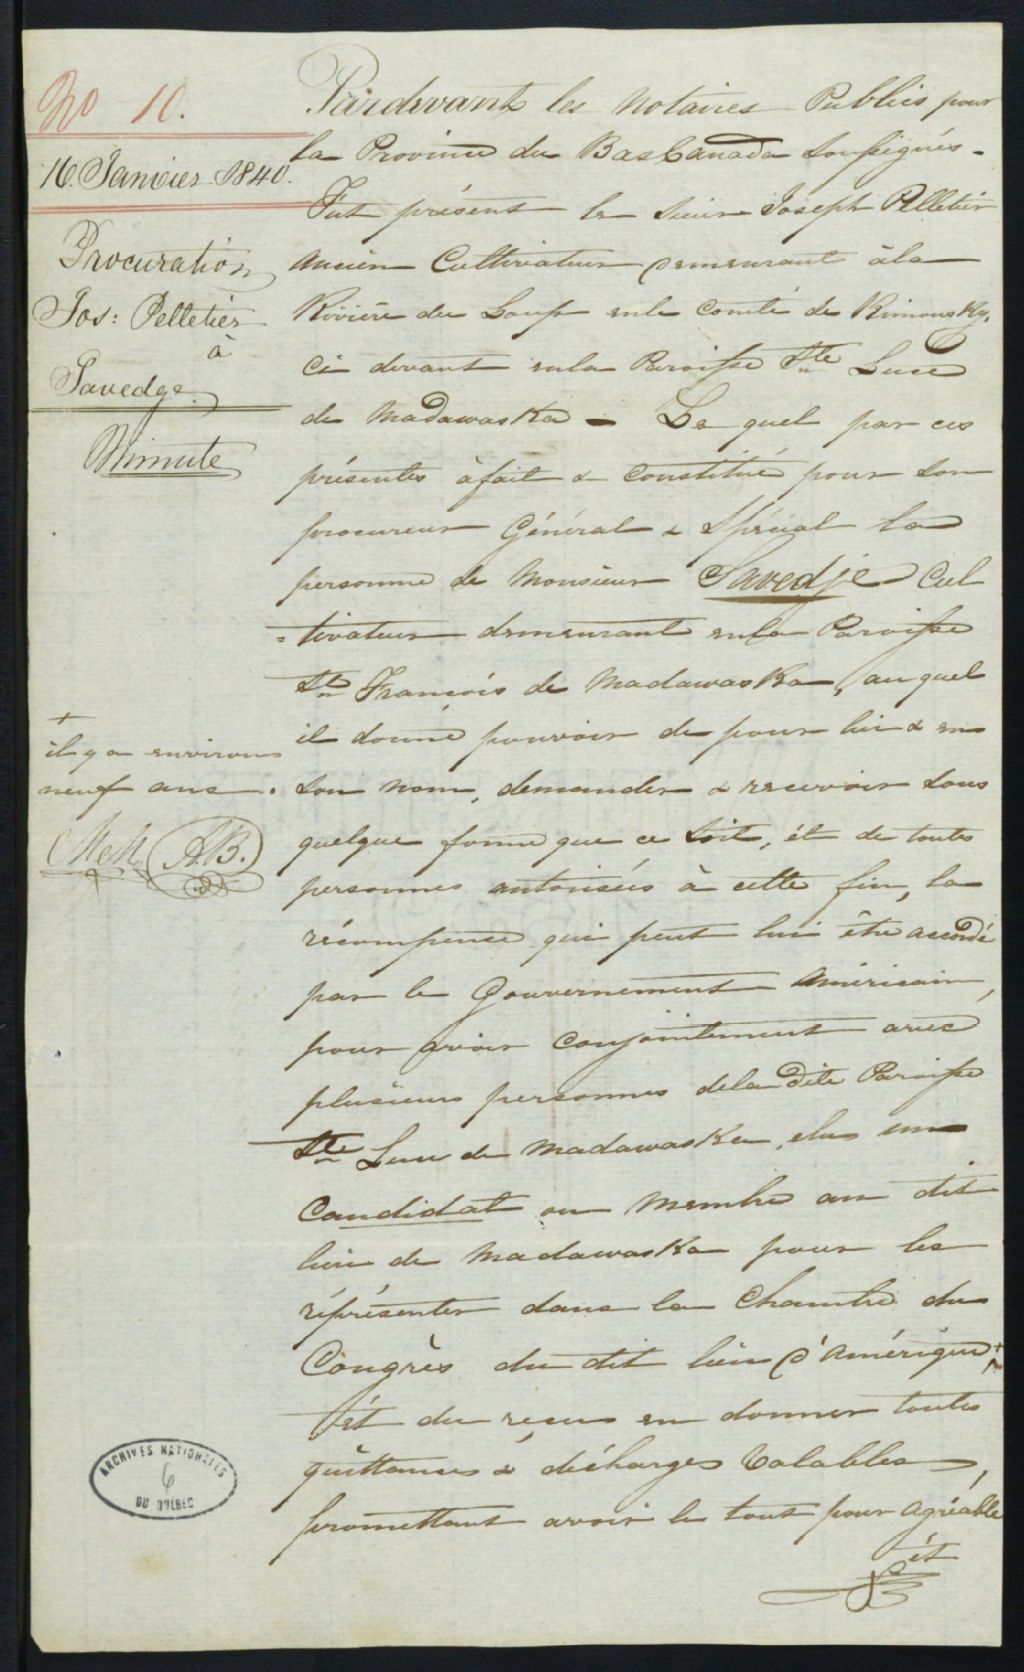 No 10.
16. Janvier 1840.
Procuration
Jos: Pelletier
à
Savedge.
Minute
Pardevant les Notaires Publics pour
la Province du Bas Canada soussignés -
Fut présent le Sieur Joseph Pelletier
ancien Cultivateur demeurant à la
Rivière du Loup en le Comté de Rimousky,
ci devant en la Paroisse Ste Luce
de Madawaska - Le quel par ces
présentes à fait & constitué pour son
procureur Général & Spécial la
personne de Monsieur Savedje Cul
=tivateur demeurant en la Paroisse
St François de Madawaska, auquel
il donne pouvoir de pour lui & en
son nom, demander & recevoir sous
quelque forme que ce soit, ét de toutes
personnes autorisées à cette fin, la
récompense qui peut lui être accordé
par le Gouvernement Américain,
pour avoir conjointement avec
plusieurs personnes de la dite Paroisse
Ste Luce de Madawaska, elus un
Candidat ou Membre au dit
lieu de Madawaska pour les
réprésenter dans la Chambre du
Congrès du dit lieu d'Amérique +
ét du reçu en donner toutes
quittances & décharges Valables,
promettant avoir le tout pour agréable
ét
+
il y a environ
neuf ans.
A.B.
ARCHIVES NATIONALES
6
DU QUÉBEC